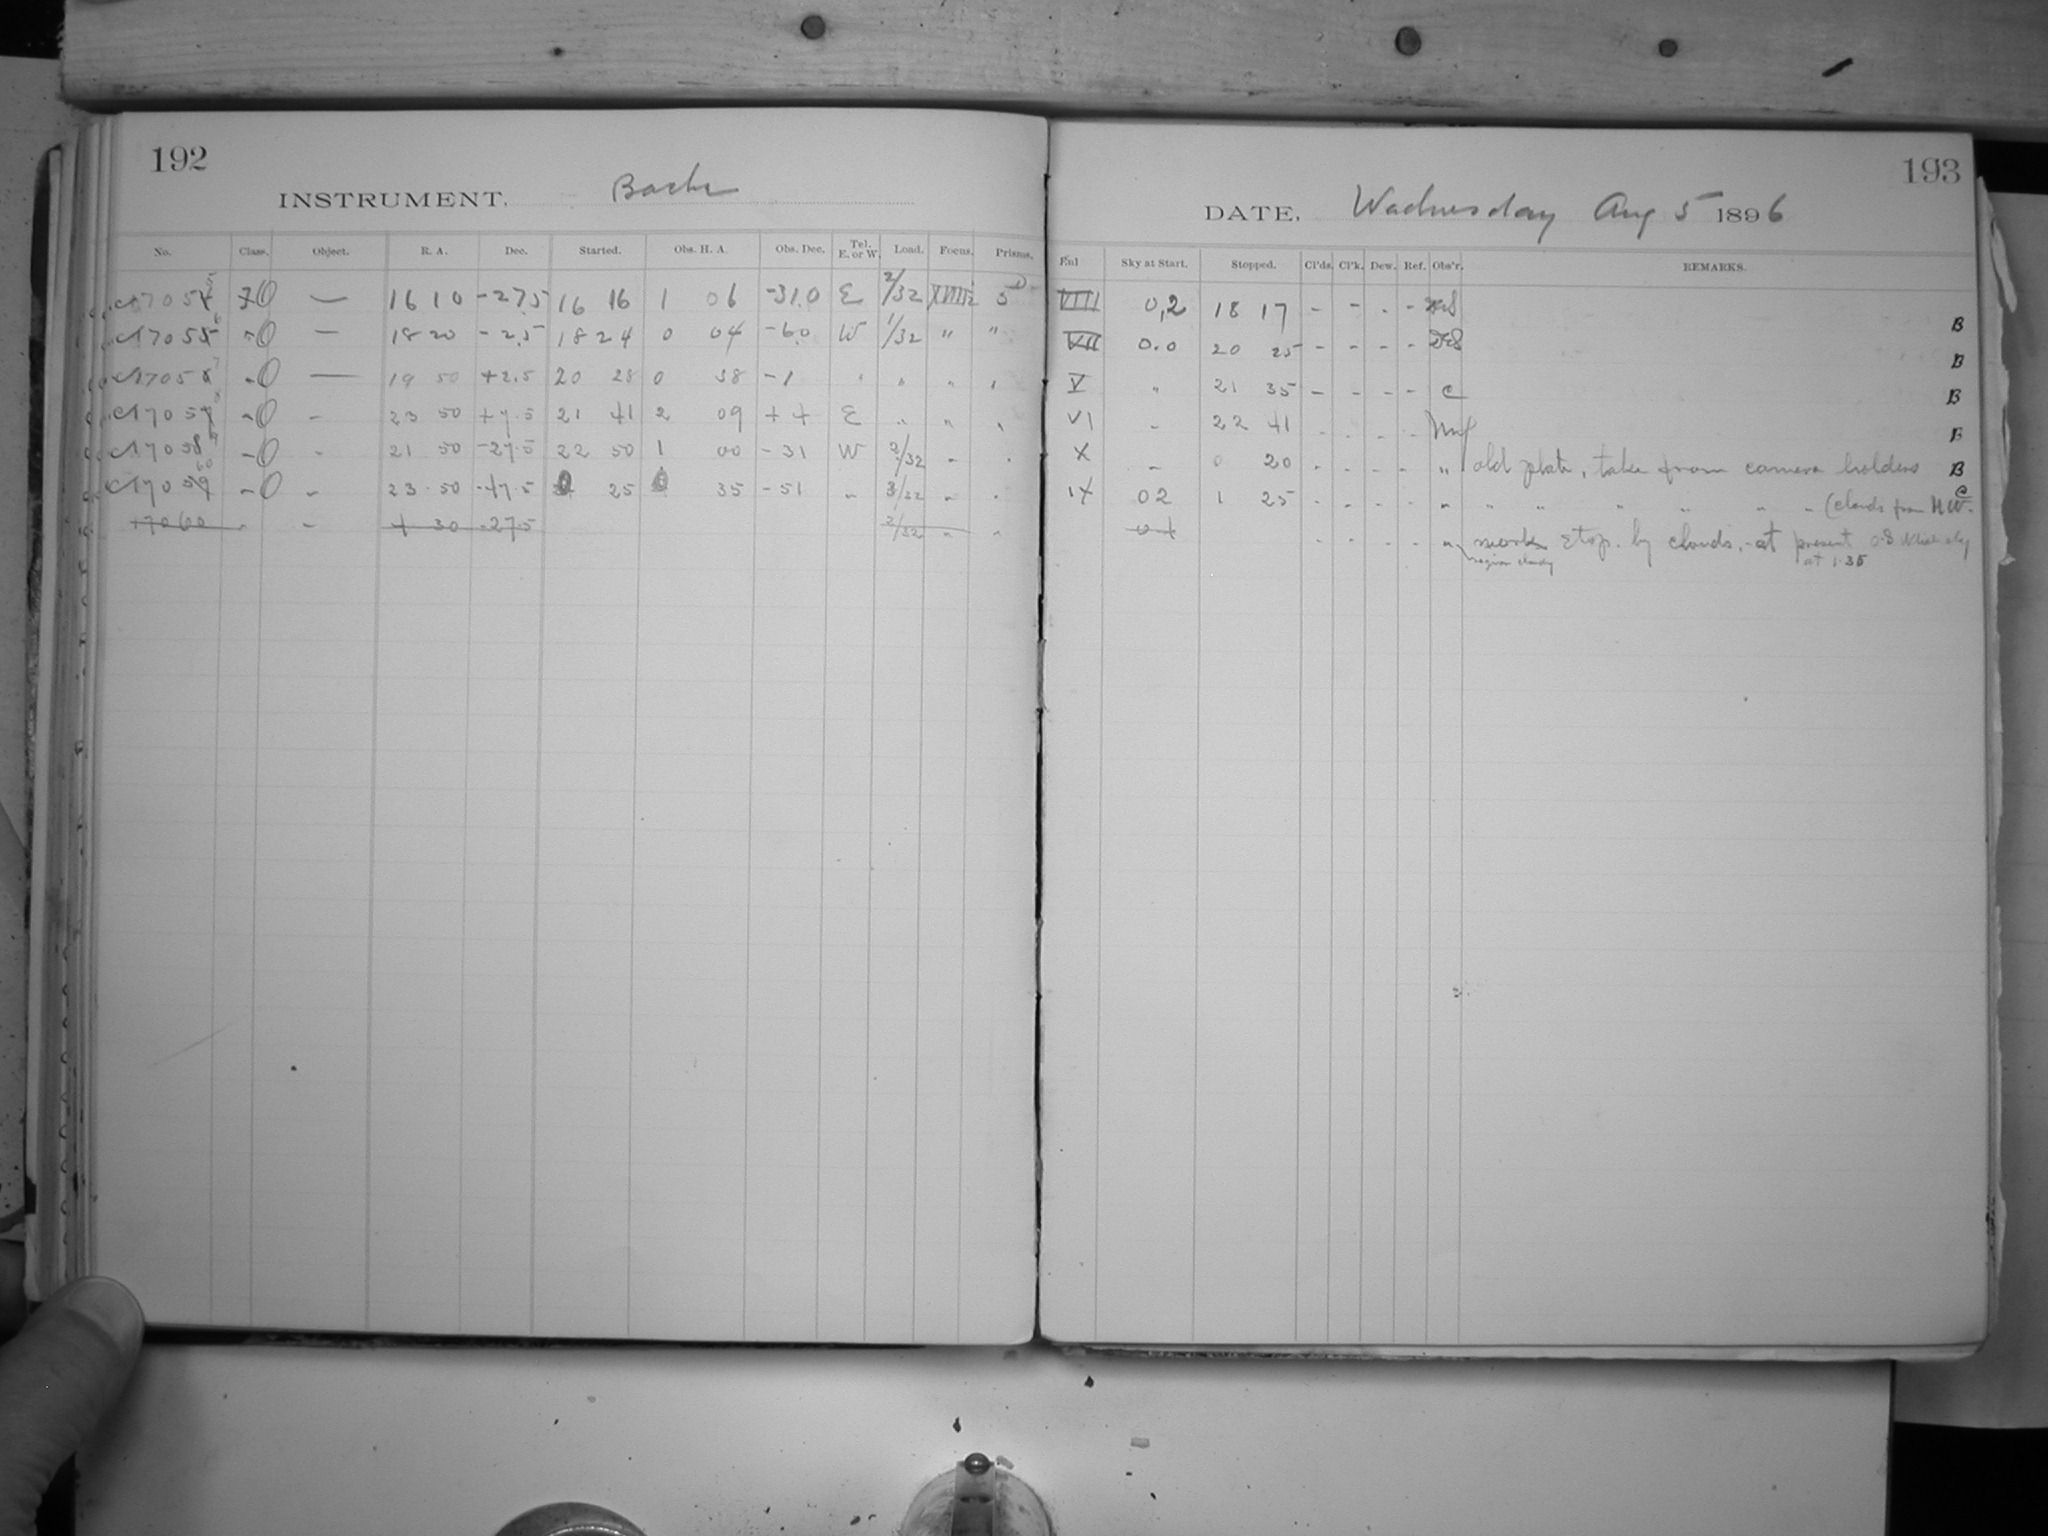 192
INSTRUMENT. Bache
No. Class. Object. R. A. Dec. Started. Obs. H. A. Obs. Dec. Tel. E. or W. Load. Focus. Prisms.
16 10 -27.5 16 16 1 06 -31.0 E 2/32 5
18 20 -2.5 18 24 0 04 -6.0 W 1/32 " "
19 50 +2.5 20 28 0 38 -1 " " " "
23 50 +7.5 21 41 2 09 +4 E " " "
21 50 -27.5 22 50 1 00 -31 W 2/32 " "
23 50 -47.5 0 25 0 35 -51 " 3/32 " "
17060 " - 1 30 -27.5 2/32 " "
193
DATE. Wednesday Aug 5 1896
Enl Sky at Start. Stopped. Cl'ds. Cl'k. Dew. Ref. Obs'r. REMARKS.
VIII 0,2 18 17 - - - - B
VII 0.0 20 25 - - - - B
V " 21 35 - - - - C B
VI " 22 41 - - - - B
X " 0 20 - - - - " old plate, taken from camera holders B
IX 02 1 25 - - - - " " " " " " " (clouds from N W. C
- - - - " work stop. by clouds, at present 0.8
region cloudy at 1.35